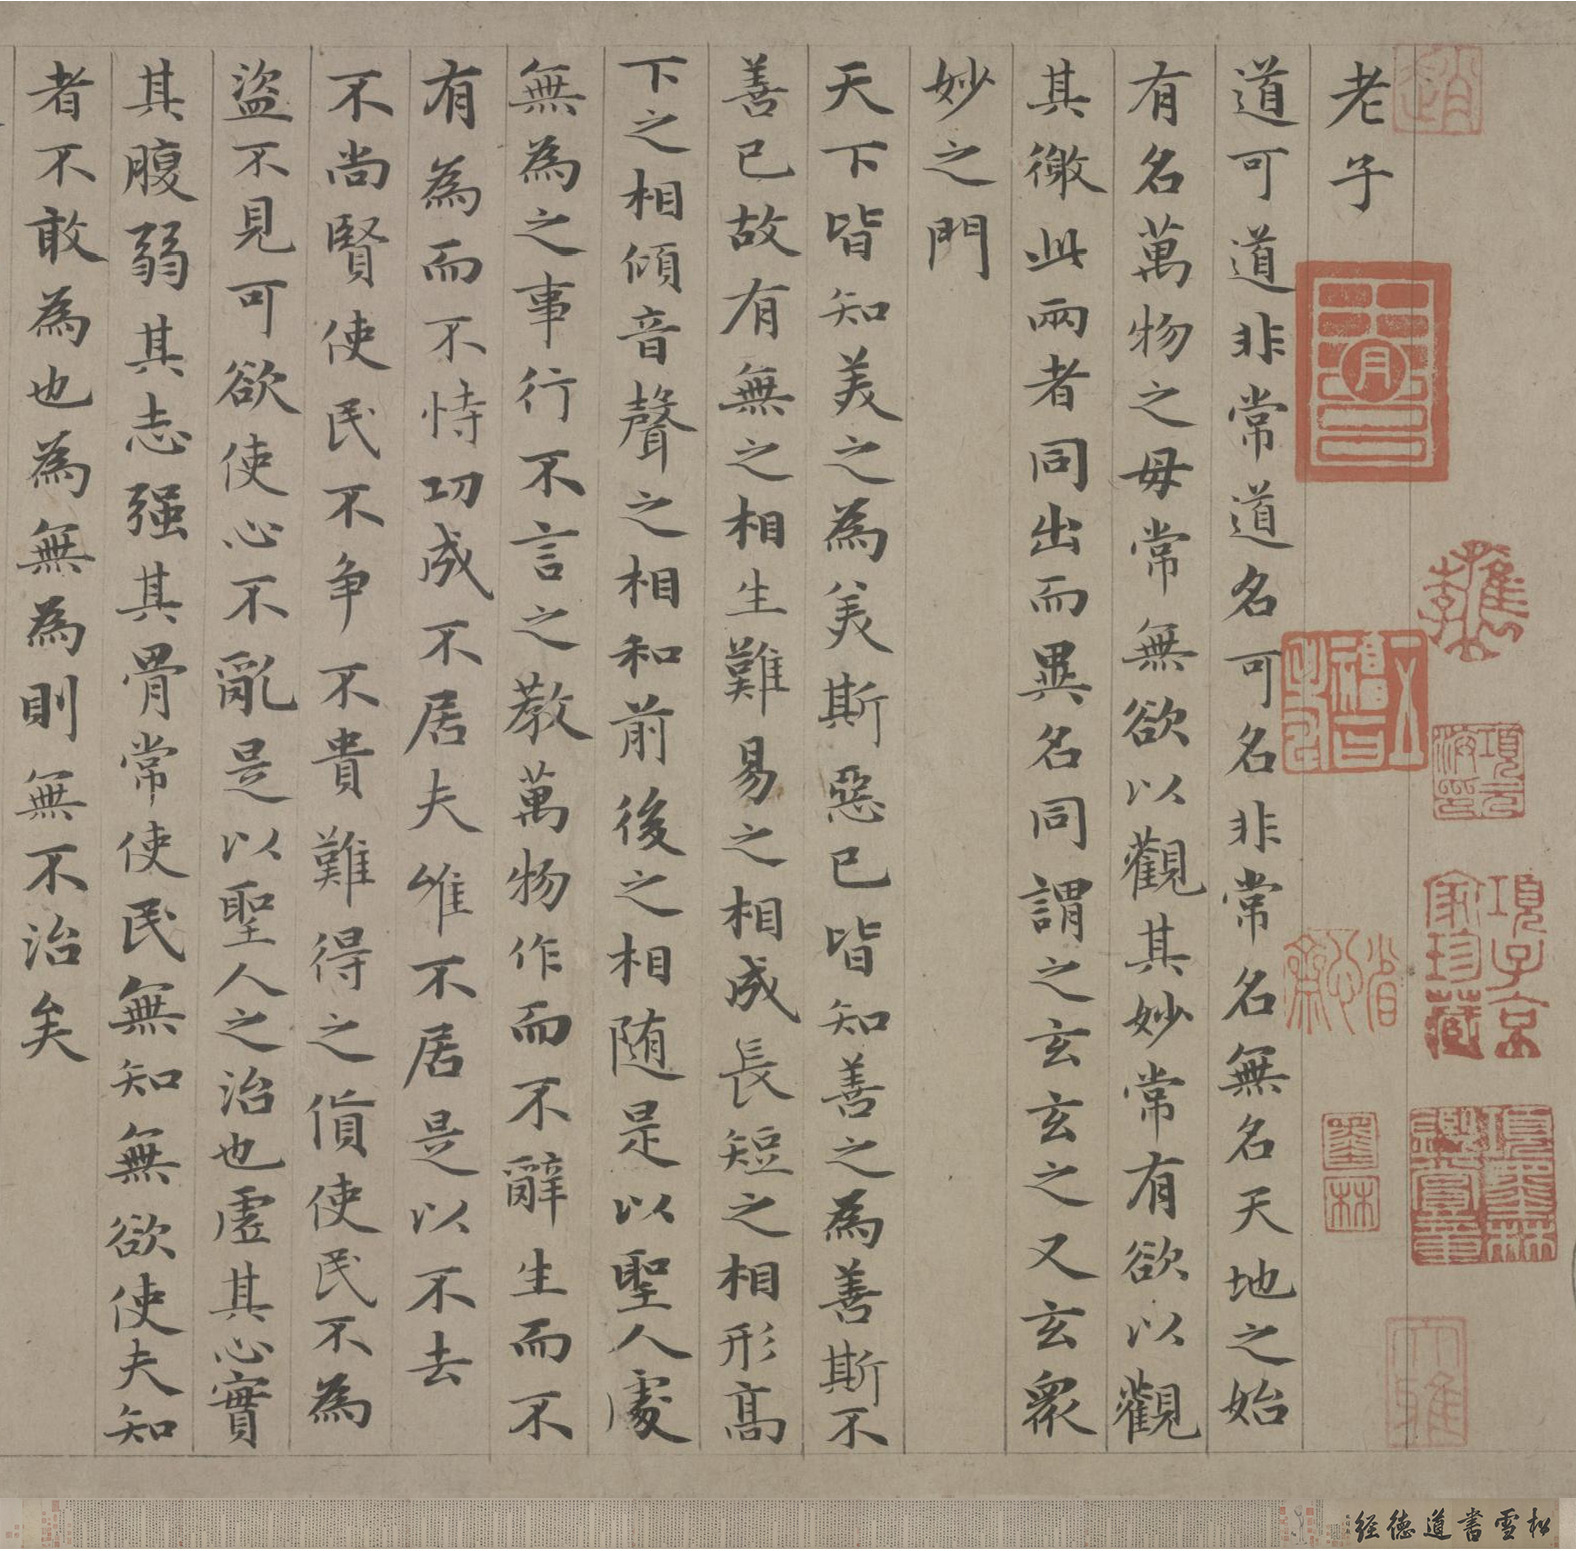 老子
道可道非常道名可名非常名無名天地之始
有名萬物之母常無欲以觀其妙常有欲以觀
其徼此兩者同出而異名同謂之玄玄之又玄眾
妙之門
天下皆知美之為美斯惡已皆知善之為善斯不
善已故有無之相生難易之相成長短之相形高
下之相傾音聲之相和前後之相随是以聖人處
無為之事行不言之教萬物作而不辭生而不
有為而不恃功成不居夫惟不居是以不去
不尚賢使民不争不貴難得之貨使民不為
盜不見可欲使心不亂是以聖人之治也虛其心實
其腹弱其志强其骨常使民無知無欲使夫知
者不敢為也為無為則無不治矣
項子京家珍藏
項元汴印
項墨林鑑賞章
墨林
松雪書道德経